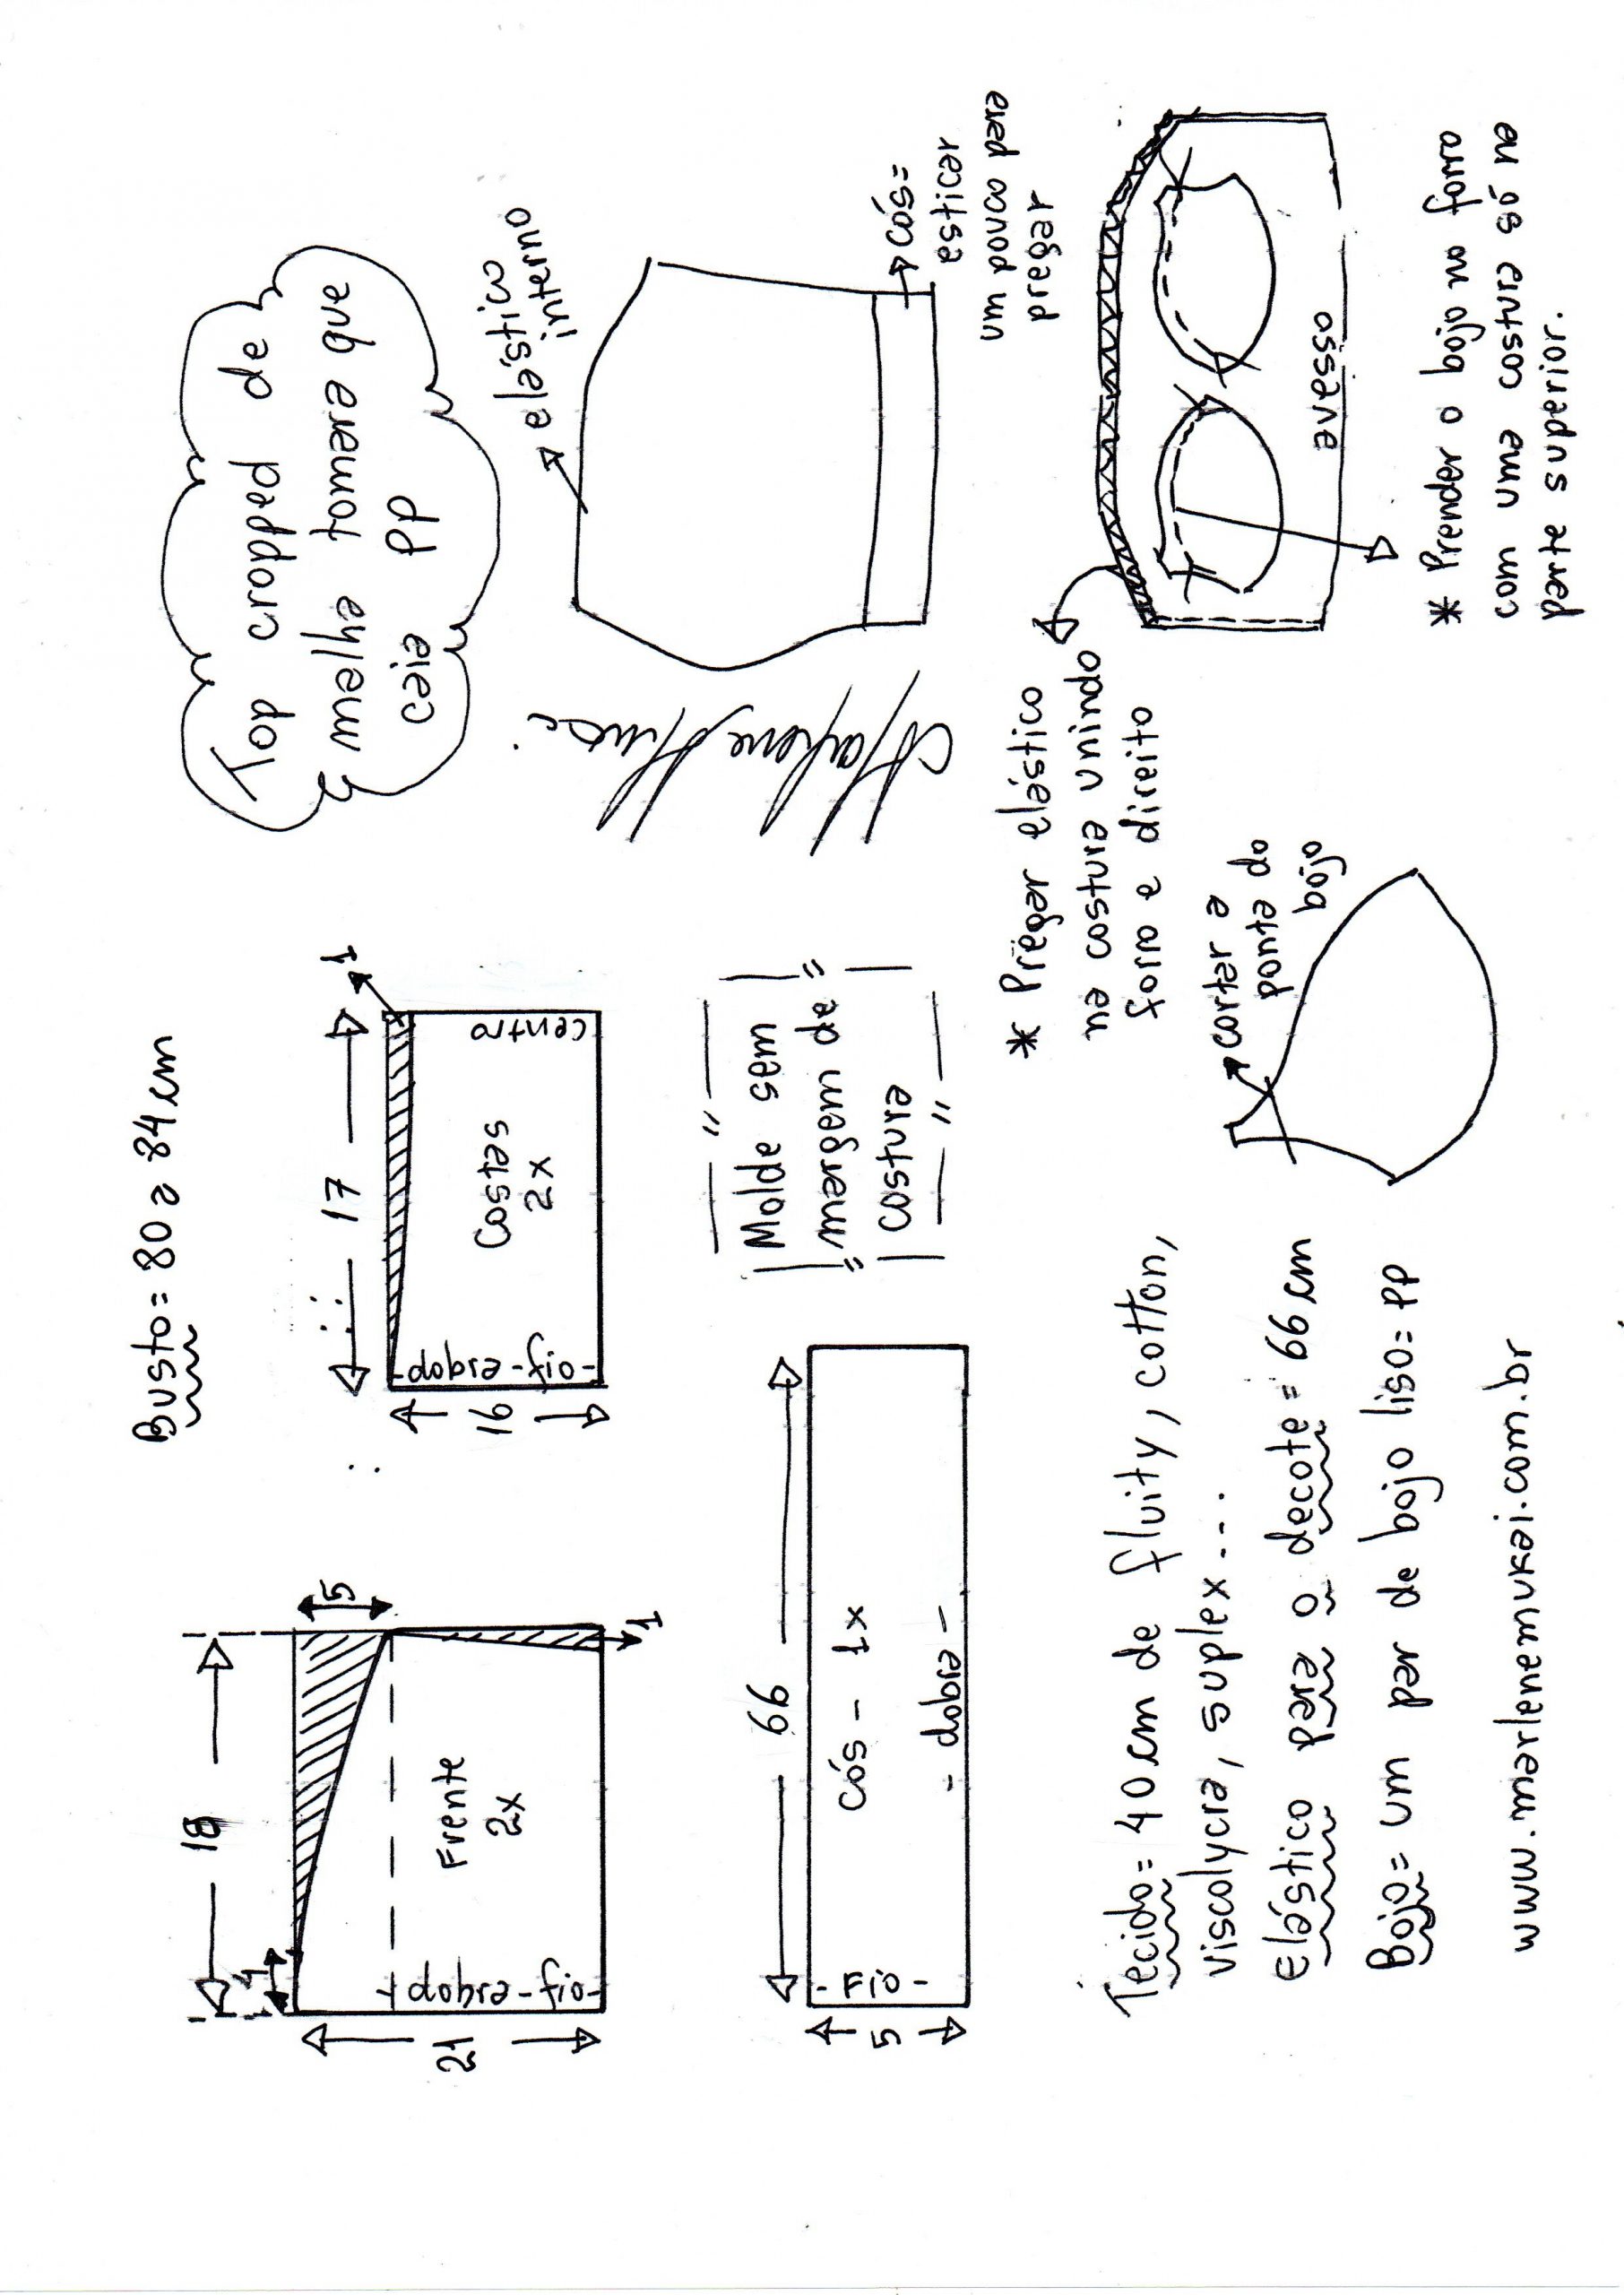 Busto = 80 a 84 cm
18
4
5
21
- dobra - fio -
Frente
2x
1
17
1
16
- dobra - fio -
Costas
2x
centro
Top cropped de
malha tomara que
caia PP
elástico
interno
Cós =
esticar
um pouco para
pregar
66
5
- Fio -
Cós - 1x
- dobra -
Molde sem
margem de
costura
* Pregar elástico
na costura unindo
forro e direito
avesso
* Prender o bojo no forro
com uma costura só na
parte superior.
cortar a
ponta do
bojo
Tecido = 40 cm de fluity, cotton,
viscolycra, suplex...
Elástico para o decote = 66 cm
Bojo = um par de bojo liso = PP
www.marlenemukai.com.br